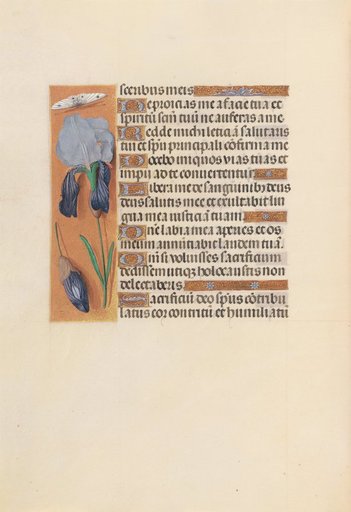 sceribus meis
Ne proicias me a facie tua et
spiritū scm̄ tuū ne auferas a me
Redde michi leticiā salutaris
tui et spū principali cōfirma me
Docebo iniquos vias tuas et
impii ad te convertentur
Libera me de sanguinibus deus
deus salutis mee et exultabit lin
gua mea iusticiā tuam
Dne labia mea aperies et os
meum annūciabit laudem tuā
Qm̄ si voluisses sacrificium
dedissem utiqz holocaustis non
delectaberis
Sacrificiū deo spūs cōtribu
latus cor contritū et humiliatū